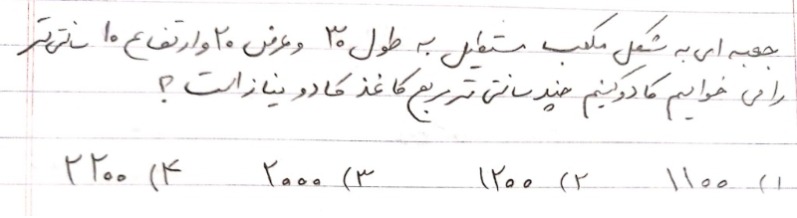 جعبه ای به شکل مکعب مستطیل به طول ۳۰ و عرض ۲۰ و ارتفاع ۱۰ سانتی‌متر
را می خواهیم کادو کنیم چند سانتی متر مربع کاغذ کادو نیاز است ؟
۱) ۱۱۰۰ ۲) ۱۲۰۰ ۳) ۲۰۰۰ ۴) ۲۲۰۰